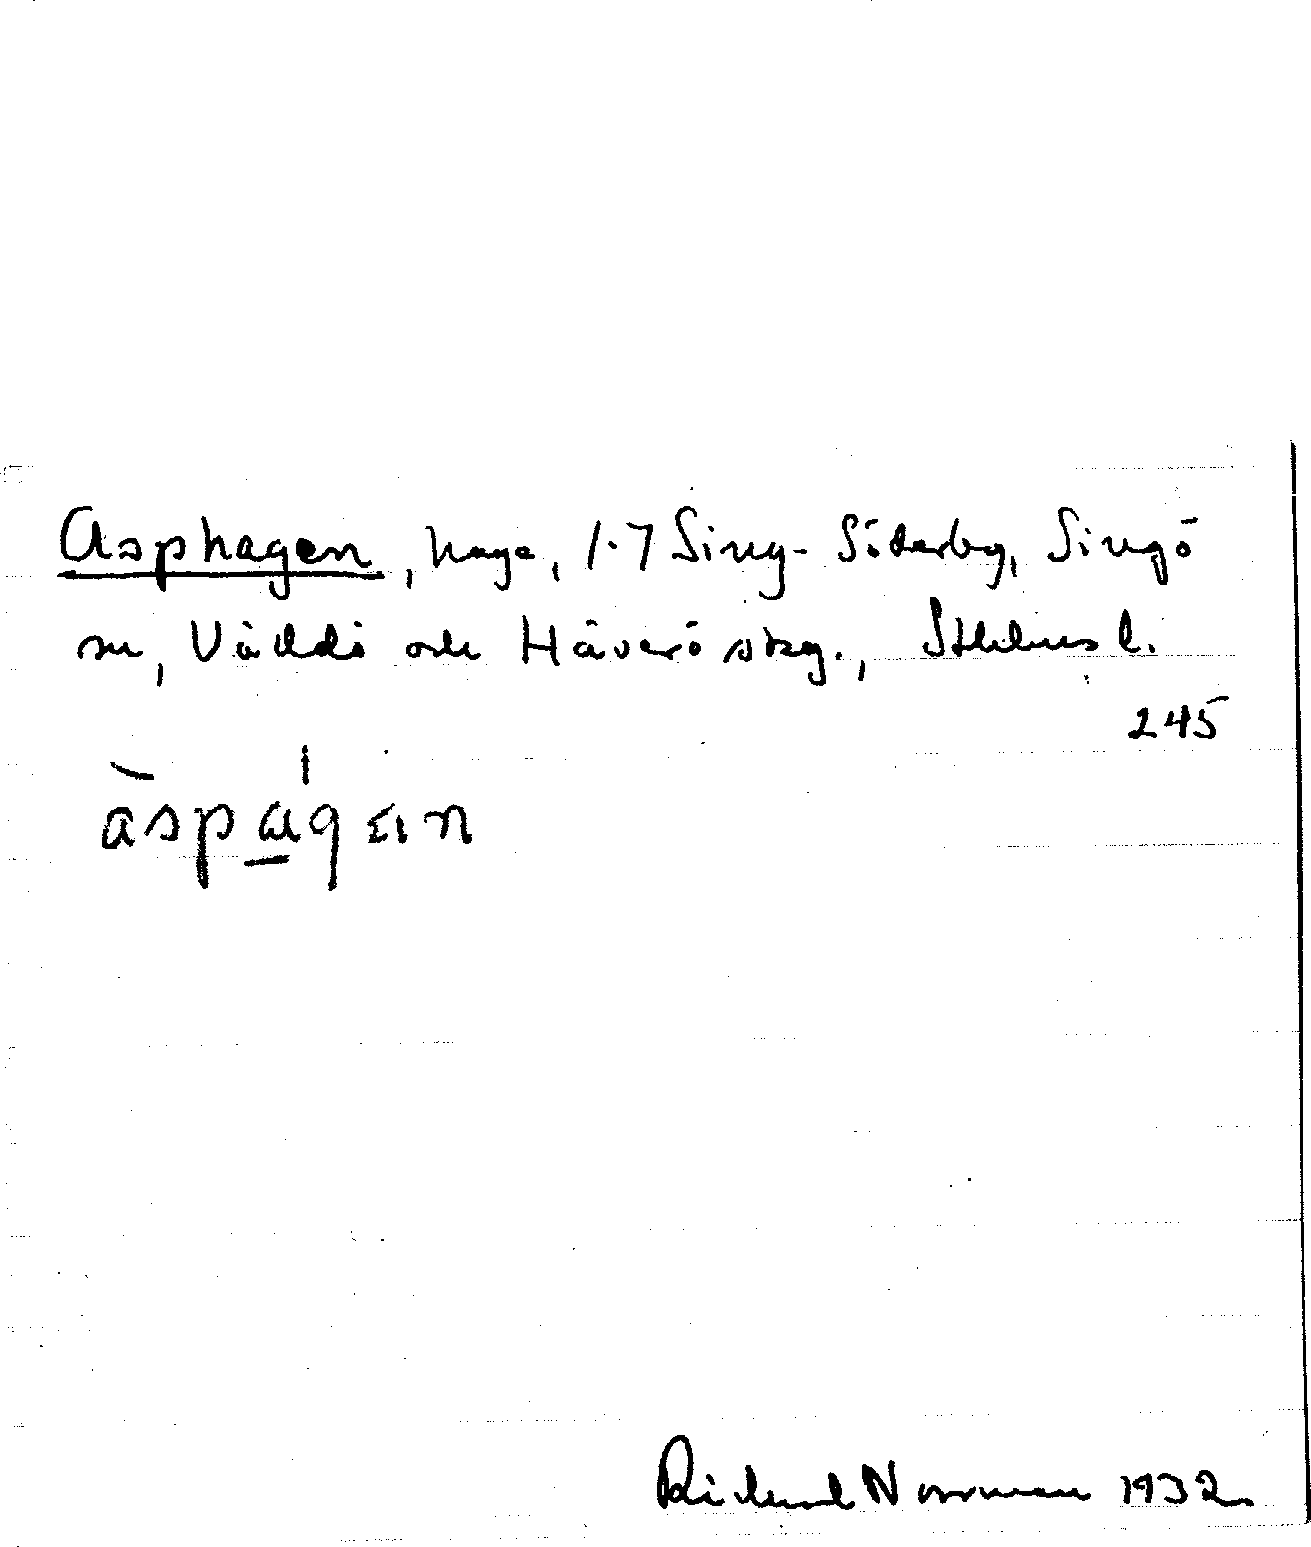 Asphagen, hage, 1-7 Sing-Söderby, Singö
sn, Väddö och Häverö skg., Sthlms l.
245
Rickard Norrman 1932